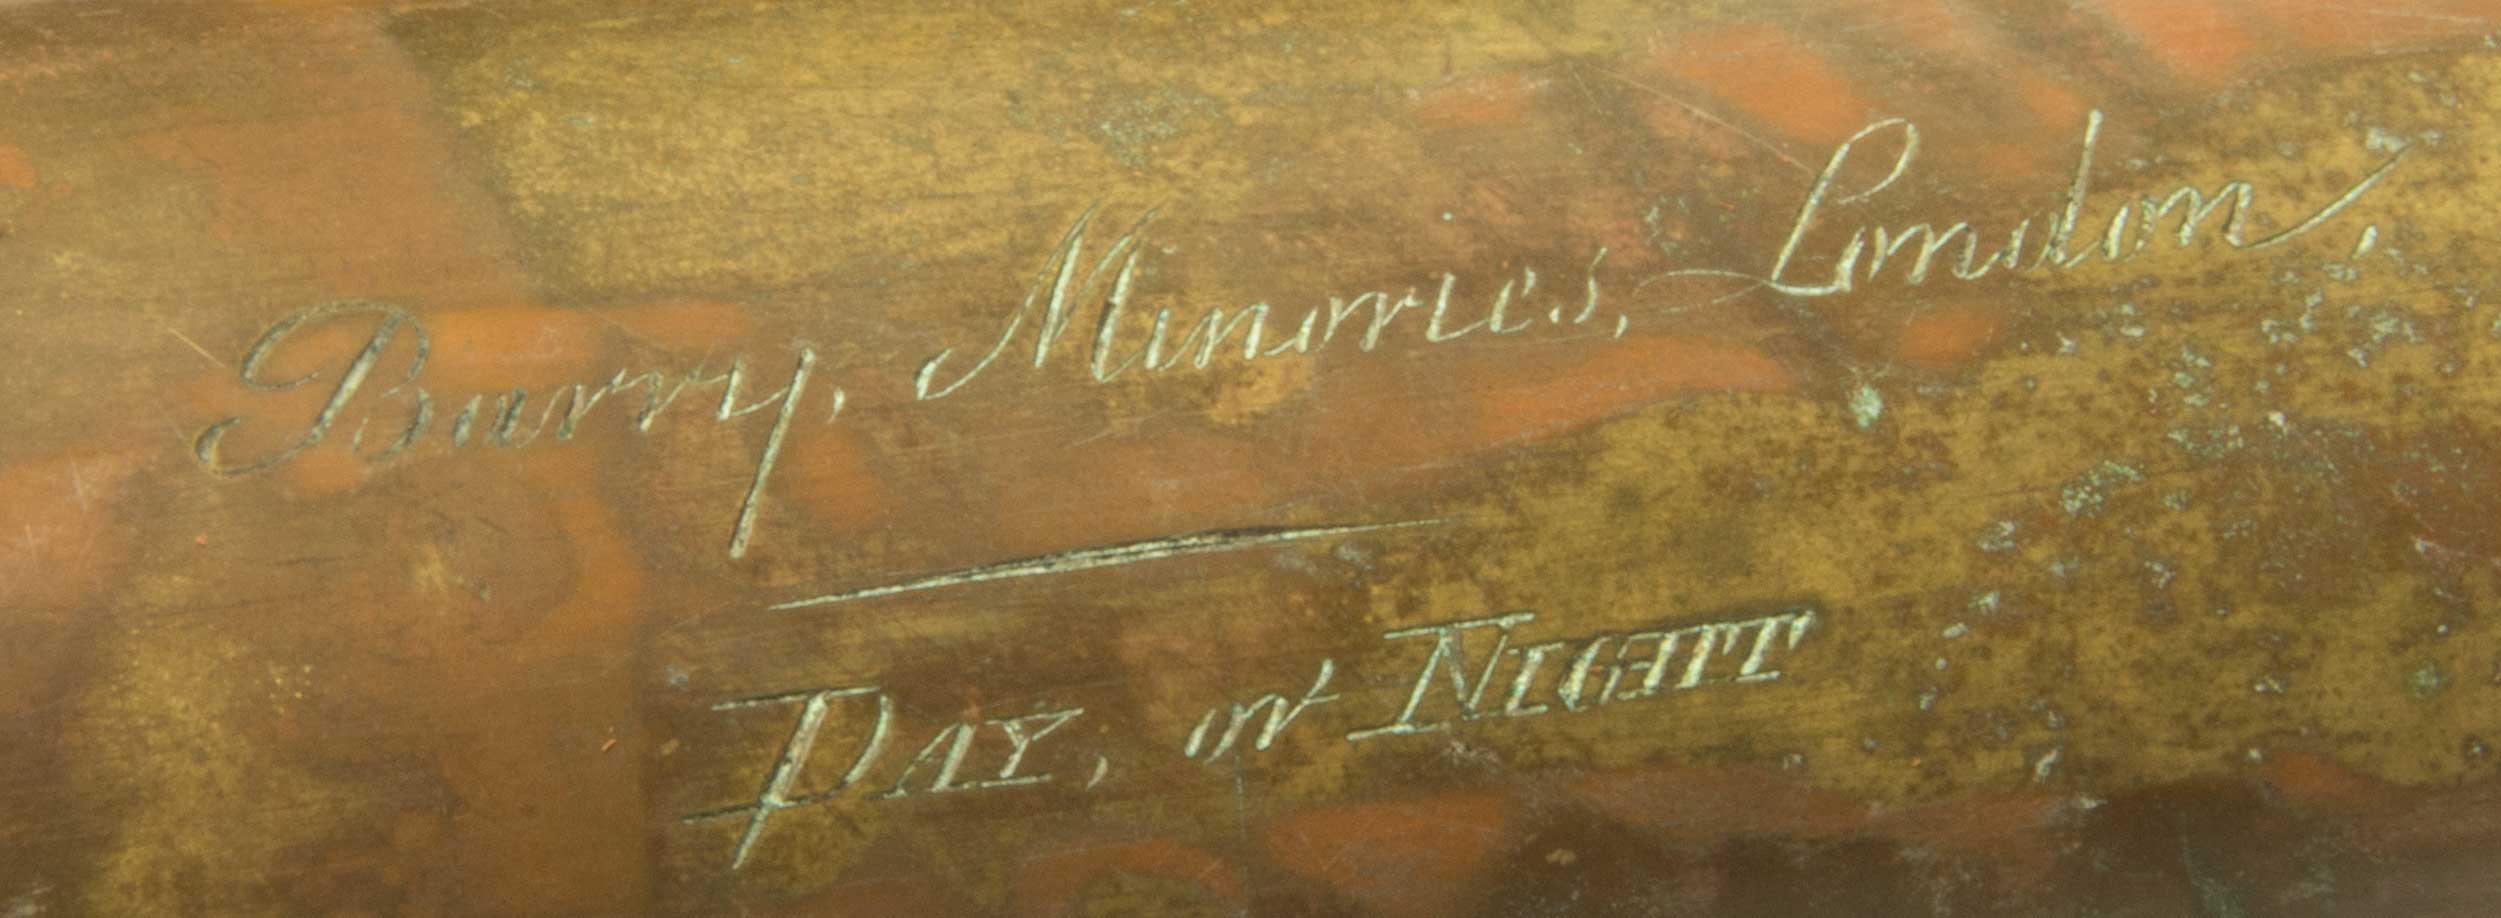 Barry, Minories, London,
DAY, or NIGHT